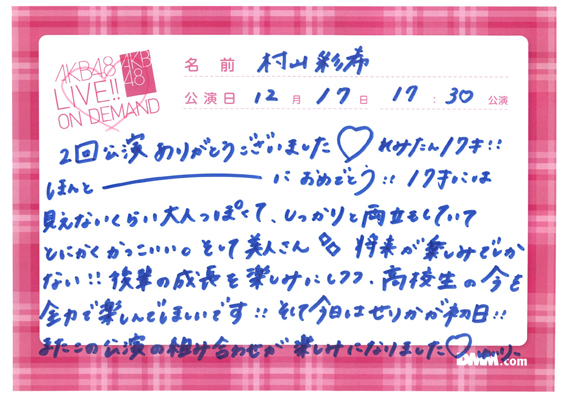 AKB48
LIVE!!
ON DEMAND
AKB
48
名前 村山彩希
公演日 12月17日 17:30公演
2回公演ありがとうございました♡れみたん17才!!
ほんとーーーーーにおめでとう!! 17才には
見えないくらい大人っぽくて、しっかりと両立もしていて
とにかくかっこいい。そして美人さん 将来が楽しみでしか
ない!! 後輩の成長を楽しみにしつつ、高校生の今を
全力で楽しんでほしいです!! そして今日はせりかが初日!!
またこの公演の組み合わせが楽しみになりました♡ ゆいりー
DMM.com